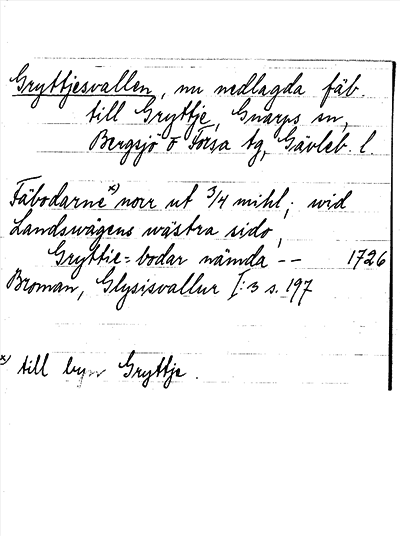 Gryttjesvallen, nu nedlagda fäb.
till Gryttje, Gnarps sn,
Bergsjö o Forsa tg, Gävleb. l.
Fäbodarne x) norr ut 3/4 mihl; wid
Landswägens wästra sido,
Gryttie=bodar nämda -- 1726
Broman, Glysisvallur I:3 s. 197
x) till byn Gryttje.